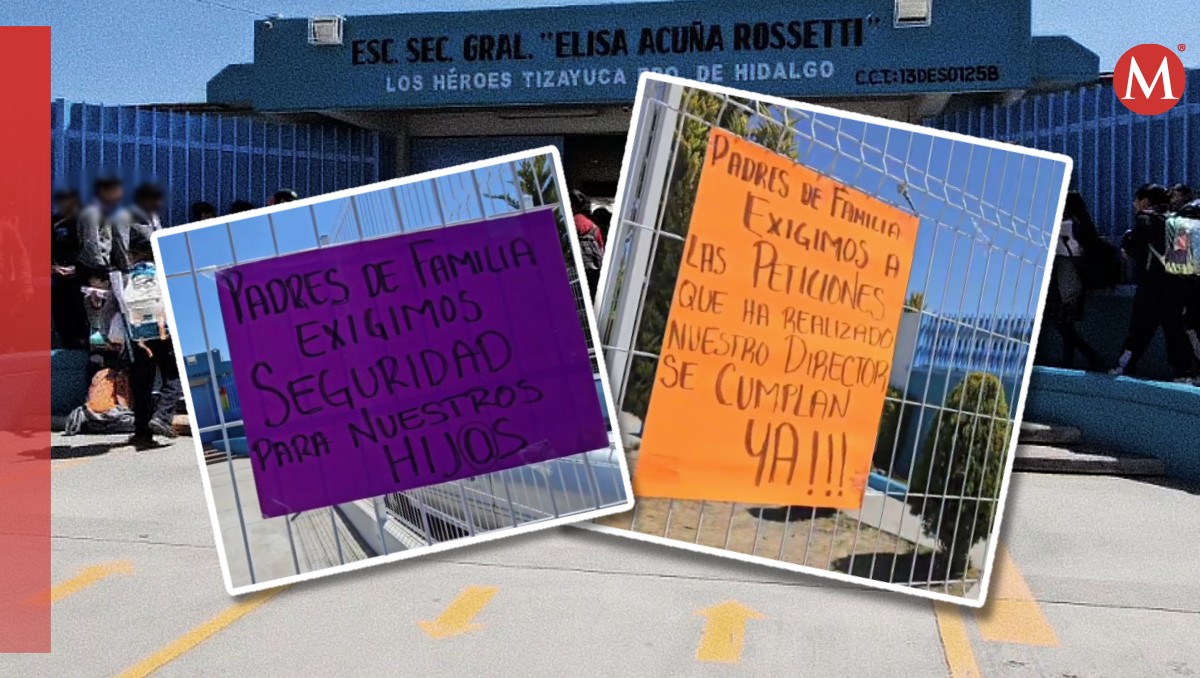 ESC. SEC. GRAL. "ELISA ACUÑA ROSSETTI"
LOS HÉROES TIZAYUCA EDO. DE HIDALGO
C.C.T: 13DES0125B
M®
PADRES DE FAMILIA
EXIGIMOS
SEGURIDAD
PARA NUESTROS
HIJOS
PADRES DE FAMILIA
EXIGIMOS A
LAS PETICIONES
QUE HA REALIZADO
NUESTRO DIRECTOR
SE CUMPLAN
YA!!!